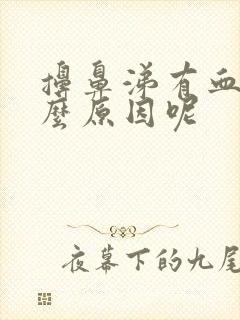 擤鼻涕有血
麼原因呢
夜幕下的九尾